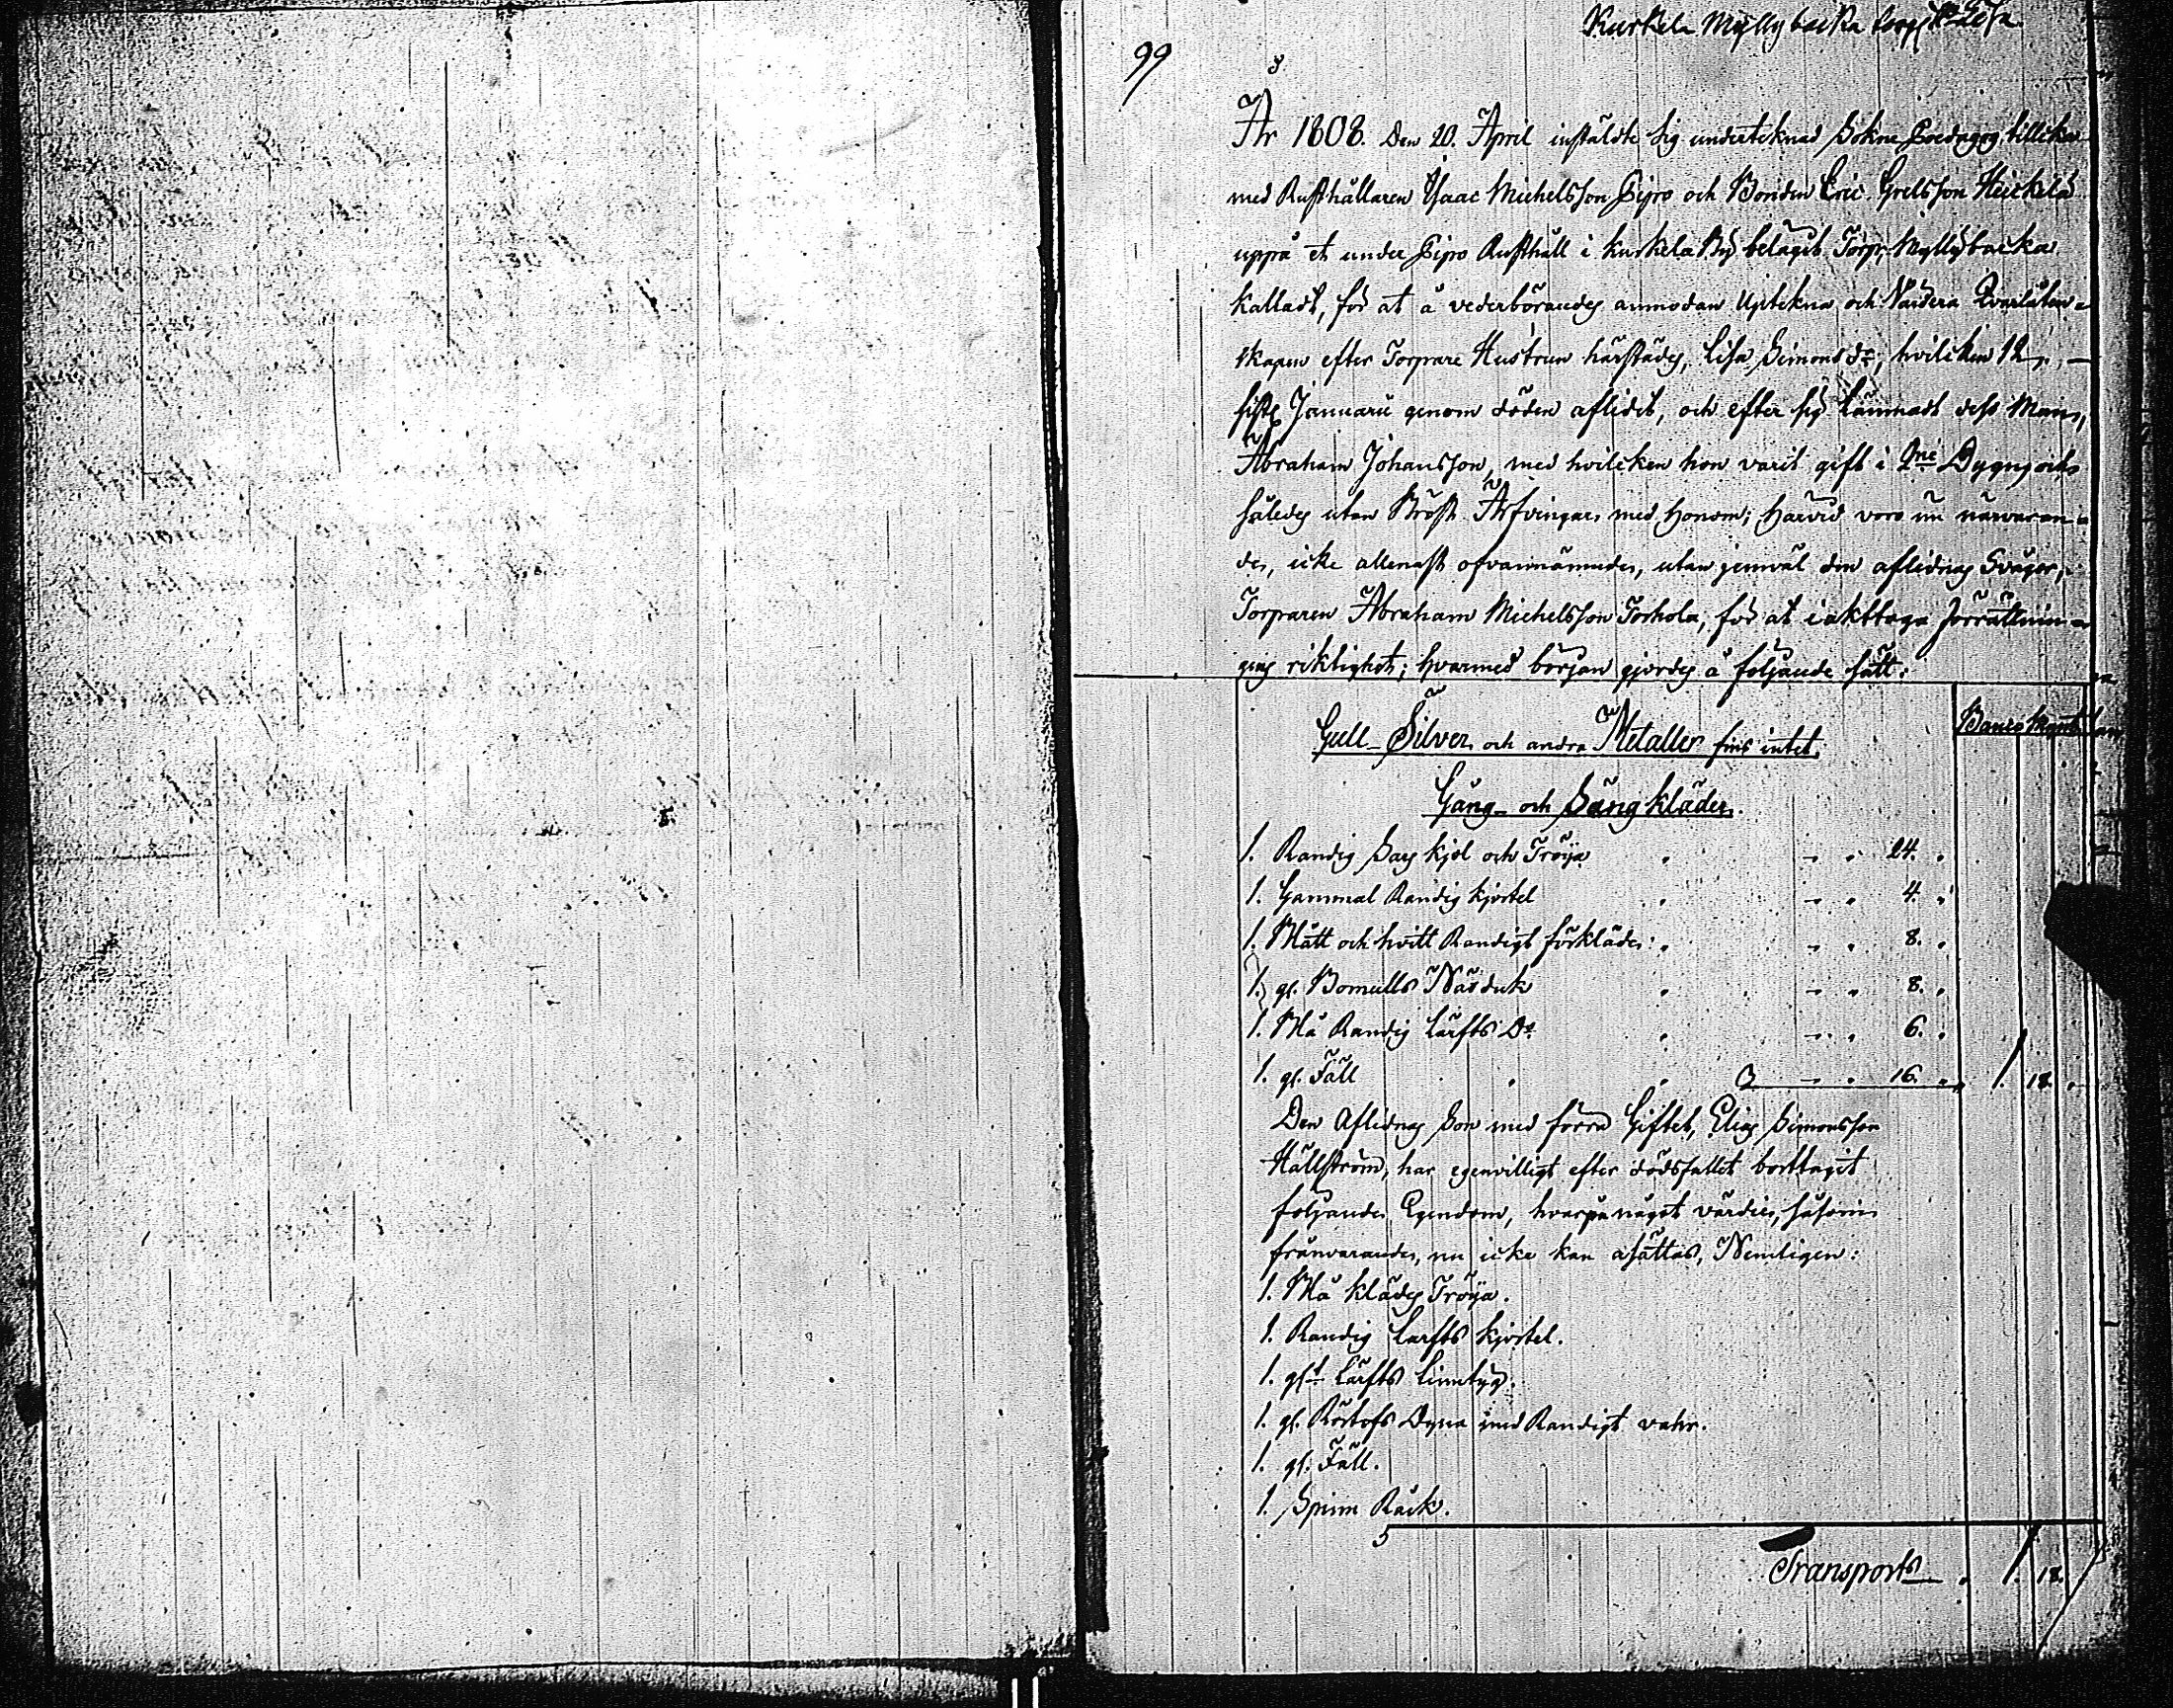 Kurkela Myllybacka torp
99
År 1808. Den 20. April instäldte sig underteknad Sokne Poedagog tillika
med Rusthållaren Isaac Michelsson Pipro och Bonden Eric Grelsson Heickelä
uppå et under Pipro Rusthåll i Kurkela By belägit Torp, Myllybacka
kalladt, för at å vederbörandes anmodan Uptekna och Värdera Qvarlåten-
skapen efter Torpare Hustrun härstädes, Lisa Simonsdr, hvilcken 12
sistl Januarii genom döden aflidit, och efter sig lämnadt dess Man,
Abraham Johansson, med hvilcken hon varit gift i 2ne Dygn och
således utan Bröst Arfvingar med Honom; härvid voro nu närvaran-
de, icke allenast ofvannämnde, utan jemväl den aflidnas Svåger,
Torparen Abraham Michelsson Torkola, för at iakttaga förrättnin-
gens riktighet; hvarmed början gjordes å följande sätt:
Banco Mynt
Gull- Silver och andra Metaller fins intet.
Gång- och Sängkläder.
1. Randig Sars kjol och Tröija 24.
1. Gammal Randig kjortel 4.
1. Blått och hvitt Randigt förkläde 8.
1. gl. Bomulls Näsduk 8.
1. Blå Randig Lärfts Do 6.
1. gl. Fäll 16. 1. 18.
Den Aflidnas Son med förra Giftet, Elias Simonsson
Hällström, har egenvilligt efter dödsfallet borttagit
följande Egendom, hvarpå något värde, såsom
frånvarande, nu icke kan åsättas, Nemligen:
1. Blå klädes Tröija.
1. Randig Larfts kjortel.
1. glt Lärfts Linntyg.
1. gl. Dyna med Randigt vahr.
1. gl. Fäll.
1. Spinn Råck.
Transport 1. 18.